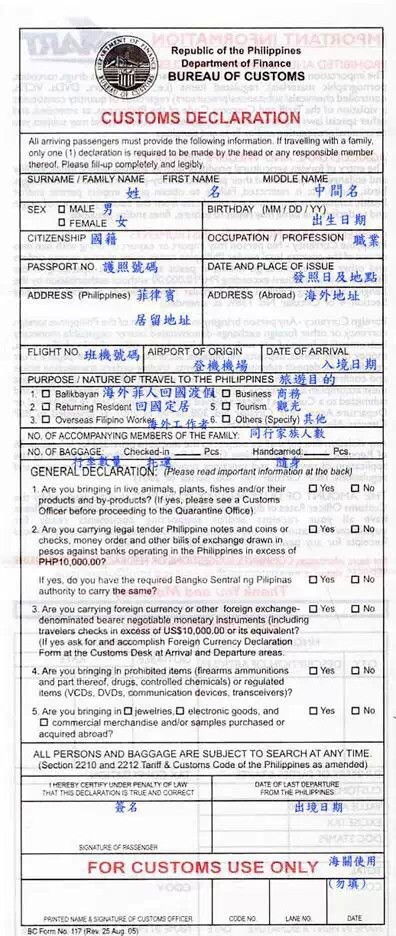 DEPARTMENT OF FINANCE
BUREAU OF CUSTOMS
Republic of the Philippines
Department of Finance
BUREAU OF CUSTOMS
CUSTOMS DECLARATION
All arriving passengers must provide the following information. If travelling with a family,
only one (1) declaration is required to be made by the head or any responsible member
thereof. Please fill-up completely and legibly.
SURNAME / FAMILY NAME FIRST NAME MIDDLE NAME
姓 名 中間名
SEX ☐ MALE 男 BIRTHDAY (MM / DD / YY)
☐ FEMALE 女 出生日期
CITIZENSHIP 國籍 OCCUPATION / PROFESSION 職業
PASSPORT NO. 護照號碼 DATE AND PLACE OF ISSUE
發照日及地點
ADDRESS (Philippines) 菲律賓 ADDRESS (Abroad) 海外地址
居留地址
FLIGHT NO. 班機號碼 AIRPORT OF ORIGIN DATE OF ARRIVAL
登機機場 入境日期
PURPOSE / NATURE OF TRAVEL TO THE PHILIPPINES 旅遊目的
1. ☐ Balikbayan 海外菲人回國渡假 4. ☐ Business 商務
2. ☐ Returning Resident 回國定居 5. ☐ Tourism 觀光
3. ☐ Overseas Filipino Worker 海外工作者 6. ☐ Others (Specify) 其他
NO. OF ACCOMPANYING MEMBERS OF THE FAMILY: 同行家族人數
NO. OF BAGGAGE: Checked-in ____ Pcs. Handcarried:____ Pcs.
行李數量 托運 隨身
GENERAL DECLARATION: (Please read important information at the back)
1. Are you bringing in live animals, plants, fishes and/or their ☐ Yes ☐ No
products and by-products? (If yes, please see a Customs
Officer before proceeding to the Quarantine Office).
2. Are you carrying legal tender Philippine notes and coins or ☐ Yes ☐ No
checks, money order and other bills of exchange drawn in
pesos against banks operating in the Philippines in excess of
PHP10,000.00?
If yes, do you have the required Bangko Sentral ng Pilipinas ☐ Yes ☐ No
authority to carry the same?
3. Are you carrying foreign currency or other foreign exchange- ☐ Yes ☐ No
denominated bearer negotiable monetary instruments (including
travelers checks in excess of US$10,000.00 or its equivalent?
(If yes ask for and accomplish Foreign Currency Declaration
Form at the Customs Desk at Arrival and Departure areas.
4. Are you bringing in prohibited items (firearms ammunitions ☐ Yes ☐ No
and part thereof, drugs, controlled chemicals) or regulated
items (VCDs, DVDs, communication devices, transceivers)?
5. Are you bringing in ☐ jewelries, ☐ electronic goods, and ☐ Yes ☐ No
☐ commercial merchandise and/or samples purchased or
acquired abroad?
ALL PERSONS AND BAGGAGE ARE SUBJECT TO SEARCH AT ANY TIME.
(Section 2210 and 2212 Tariff & Customs Code of the Philippines as amended)
I HEREBY CERTIFY UNDER PENALTY OF LAW DATE OF LAST DEPARTURE
THAT THIS DECLARATION IS TRUE AND CORRECT FROM THE PHILIPPINES
簽名 出境日期
SIGNATURE OF PASSENGER
FOR CUSTOMS USE ONLY 海關使用
(勿填)
PRINTED NAME & SIGNATURE OF CUSTOMS OFFICER CODE NO. LANE NO. DATE
BC Form No. 117 (Rev. 25 Aug. 05)